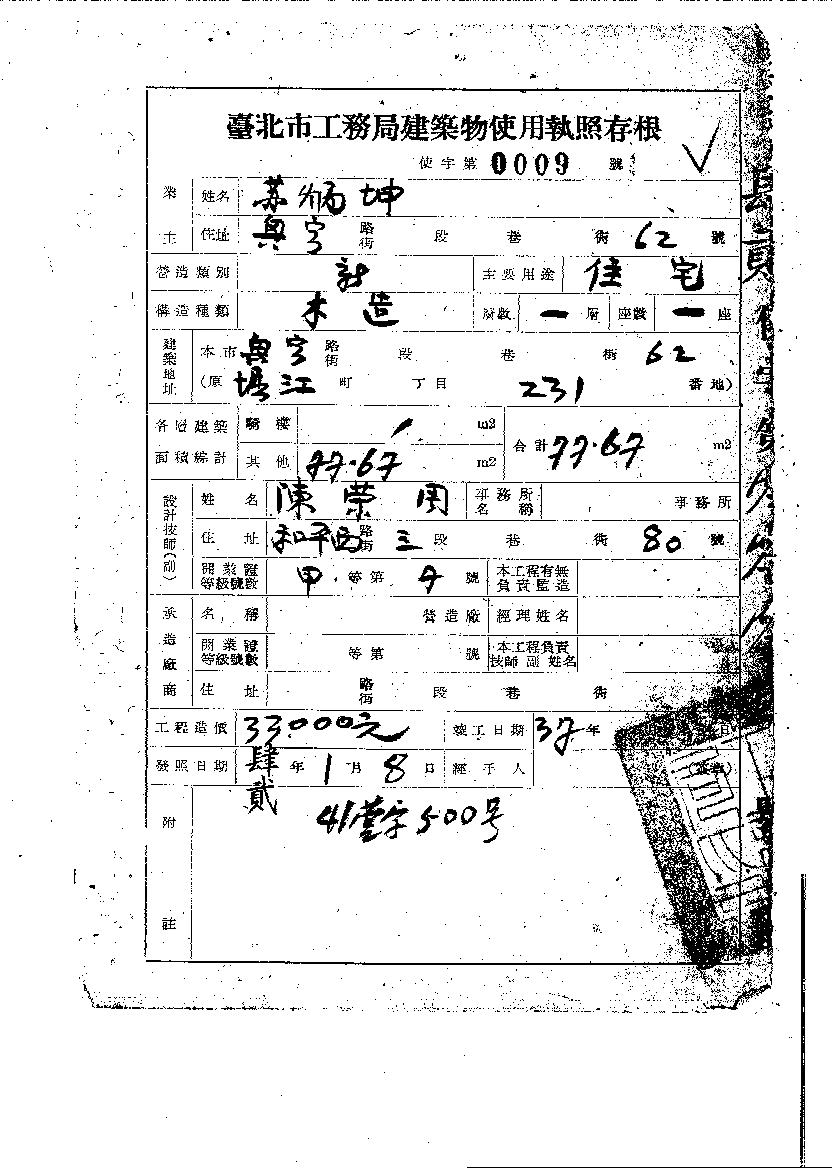 臺北市工務局建築物使用執照存根
使字第 0009 號
業主 姓名 苏炳坤
住址 興寧 路街 段 巷 衖 62 號
營造類別 新 主要用途 住宅
構造種類 木造 層數 一 層 座數 一 座
建築地址 本市 興寧 路街 段 巷 衖 62
(原 堀江 町 丁目 231 番地)
各層建築面積總計 騎樓 m2
其他 77.67 m2 合計 77.67 m2
設計技師(副) 姓名 陳榮周 事務所名稱 事務所
住址 和平西 路街 三 段 巷 衖 80 號
開業證等級號數 甲 等第 號 本工程有無負責監造
承造廠商 名稱 營造廠 經理姓名
開業證等級號數 等第 號 本工程負責技師副姓名
住址 路街 段 巷 衖
工程造價 33.000元 竣工日期 37年
發照日期 肆貳 年 1 月 8 日 經手人
附註 41營字500号